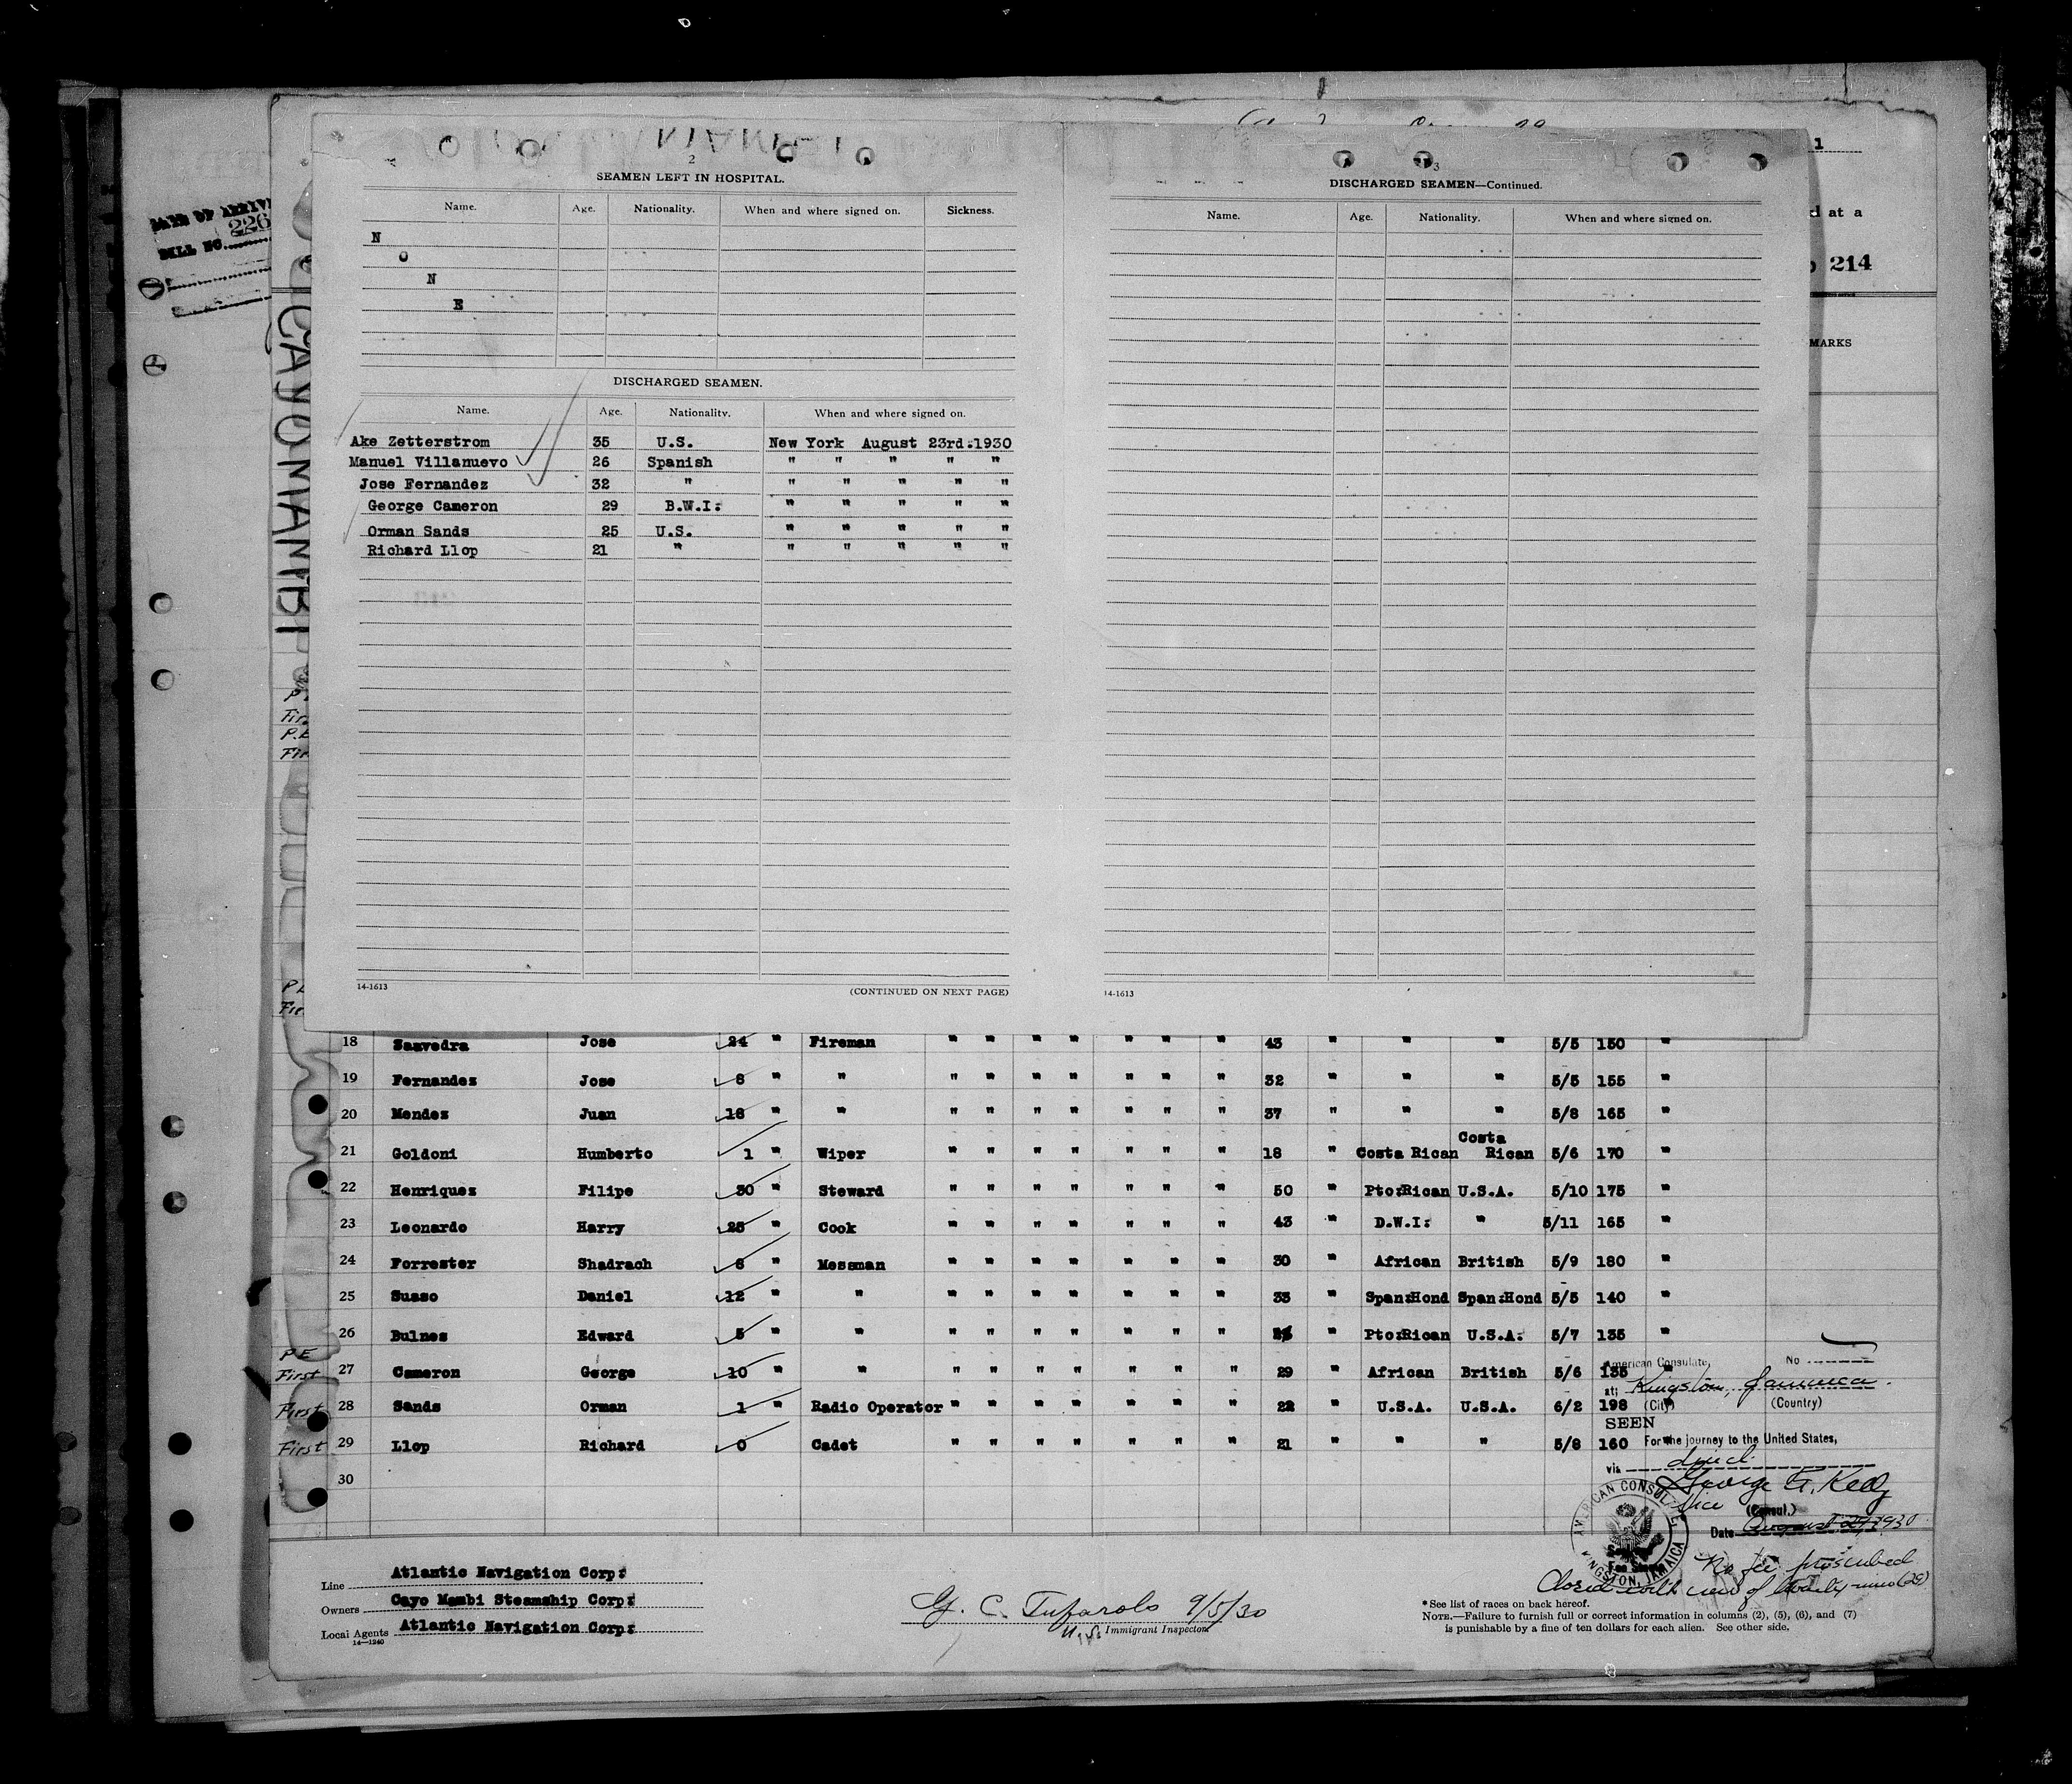 DATE OF ARRIV
BILL NO. 226
CAYO MAMBI
2
SEAMEN LEFT IN HOSPITAL.
Name. Age. Nationality. When and where signed on. Sickness.
N
O
N
E
DISCHARGED SEAMEN.
Name. Age. Nationality. When and where signed on.
Ake Zetterstrom 35 U.S. New York August 23rd:1930
Manuel Villanuevo 26 Spanish " " " " "
Jose Fernandez 32 " " " " " "
George Cameron 29 B.W.I: " " " " "
Orman Sands 25 U.S. " " " " "
Richard Llop 21 " " " " " "
14-1613 (CONTINUED ON NEXT PAGE)
3
DISCHARGED SEAMEN—Continued.
Name. Age. Nationality. When and where signed on.
14-1613
1
d at a
214
MARKS
P.E
Fir
P E
18 Saavedra Jose 24 " Fireman " " " " " " " 43 " " " 5/5 150 "
19 Fernandez Jose 8 " " " " " " " " " 32 " " " 5/5 155 "
20 Mendez Juan 18 " " " " " " " " " 37 " " " 5/8 165 "
21 Goldoni Humberto 1 " Wiper " " " " " " " 18 " Costa Rican Costa Rican 5/6 170 "
22 Henriquez Filipe 30 " Steward " " " " " " " 50 " Pto:Rican U.S.A. 5/10 175 "
23 Leonardo Harry 25 " Cook " " " " " " " 43 " D.W.I: " 5/11 165 "
24 Forrester Shadrach 6 " Messman " " " " " " " 30 " African British 5/9 180 "
25 Suaso Daniel 12 " " " " " " " " " 33 " Span:Hond Span:Hond 5/5 140 "
26 Bulnes Edward 5 " " " " " " " " " " Pto:Rican U.S.A: 5/7 135 "
P E
First 27 Cameron George 10 " " " " " " " " " 29 " African British 5/6 135 "
First 28 Sands Orman 1 " Radio Operator " " " " " " " 22 " U.S.A. U.S.A. 6/2 198 "
First 29 Llop Richard 0 Cadet " " " " " " " 21 " " " 5/8 160 "
30
American Consulate, No
at: Kingston, Jamaica.
(City) (Country)
SEEN
For the journey to the United States,
via direct
George F. Kelly
Vice (Consul.)
Date August 29, 1930
AMERICAN CONSULATE, KINGSTON, JAMAICA
No fee prescribed
Closed with crew of twenty-nine (29)
Line Atlantic Navigation Corp:
Owners Cayo Mambi Steamship Corp:
Local Agents Atlantic Navigation Corp:
14—1240
G. C. Tufarolo 9/5/30
U.S. Immigrant Inspector
* See list of races on back hereof.
NOTE.—Failure to furnish full or correct information in columns (2), (5), (6), and (7)
is punishable by a fine of ten dollars for each alien. See other side.